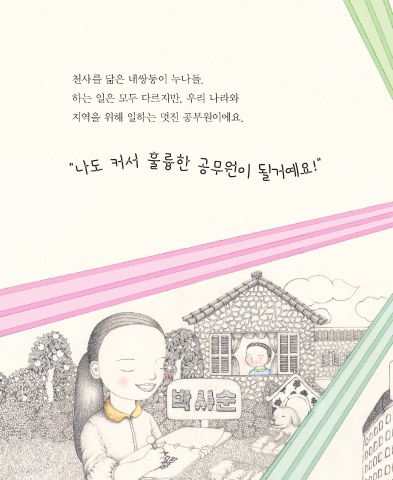 천사를 닮은 네쌍둥이 누나들.
하는 일은 모두 다르지만, 우리 나라와
지역을 위해 일하는 멋진 공무원이에요.
"나도 커서 훌륭한 공무원이 될거예요!"
박씨순